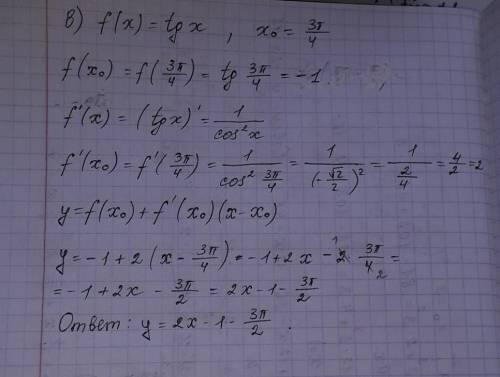 в) f(x) = tg x , x₀ = 3π/4
f(x₀) = f(3π/4) = tg 3π/4 = -1
f'(x) = (tg x)' = 1/cos²x
f'(x₀) = f'(3π/4) = 1/cos² 3π/4 = 1/(-√2/2)² = 1/(2/4) = 4/2 = 2
y = f(x₀) + f'(x₀)(x - x₀)
y = -1 + 2(x - 3π/4) = -1 + 2x - 2¹ · 3π/4₂ =
= -1 + 2x - 3π/2 = 2x - 1 - 3π/2
Ответ: y = 2x - 1 - 3π/2 .